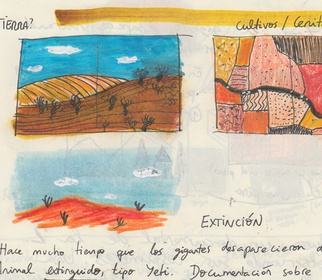 TIERRA?
Cultivos /
EXTINCIÓN
Hace mucho tiempo que los gigantes desaparecieron
Animal extinguido, tipo Yeti. Documentación sobre